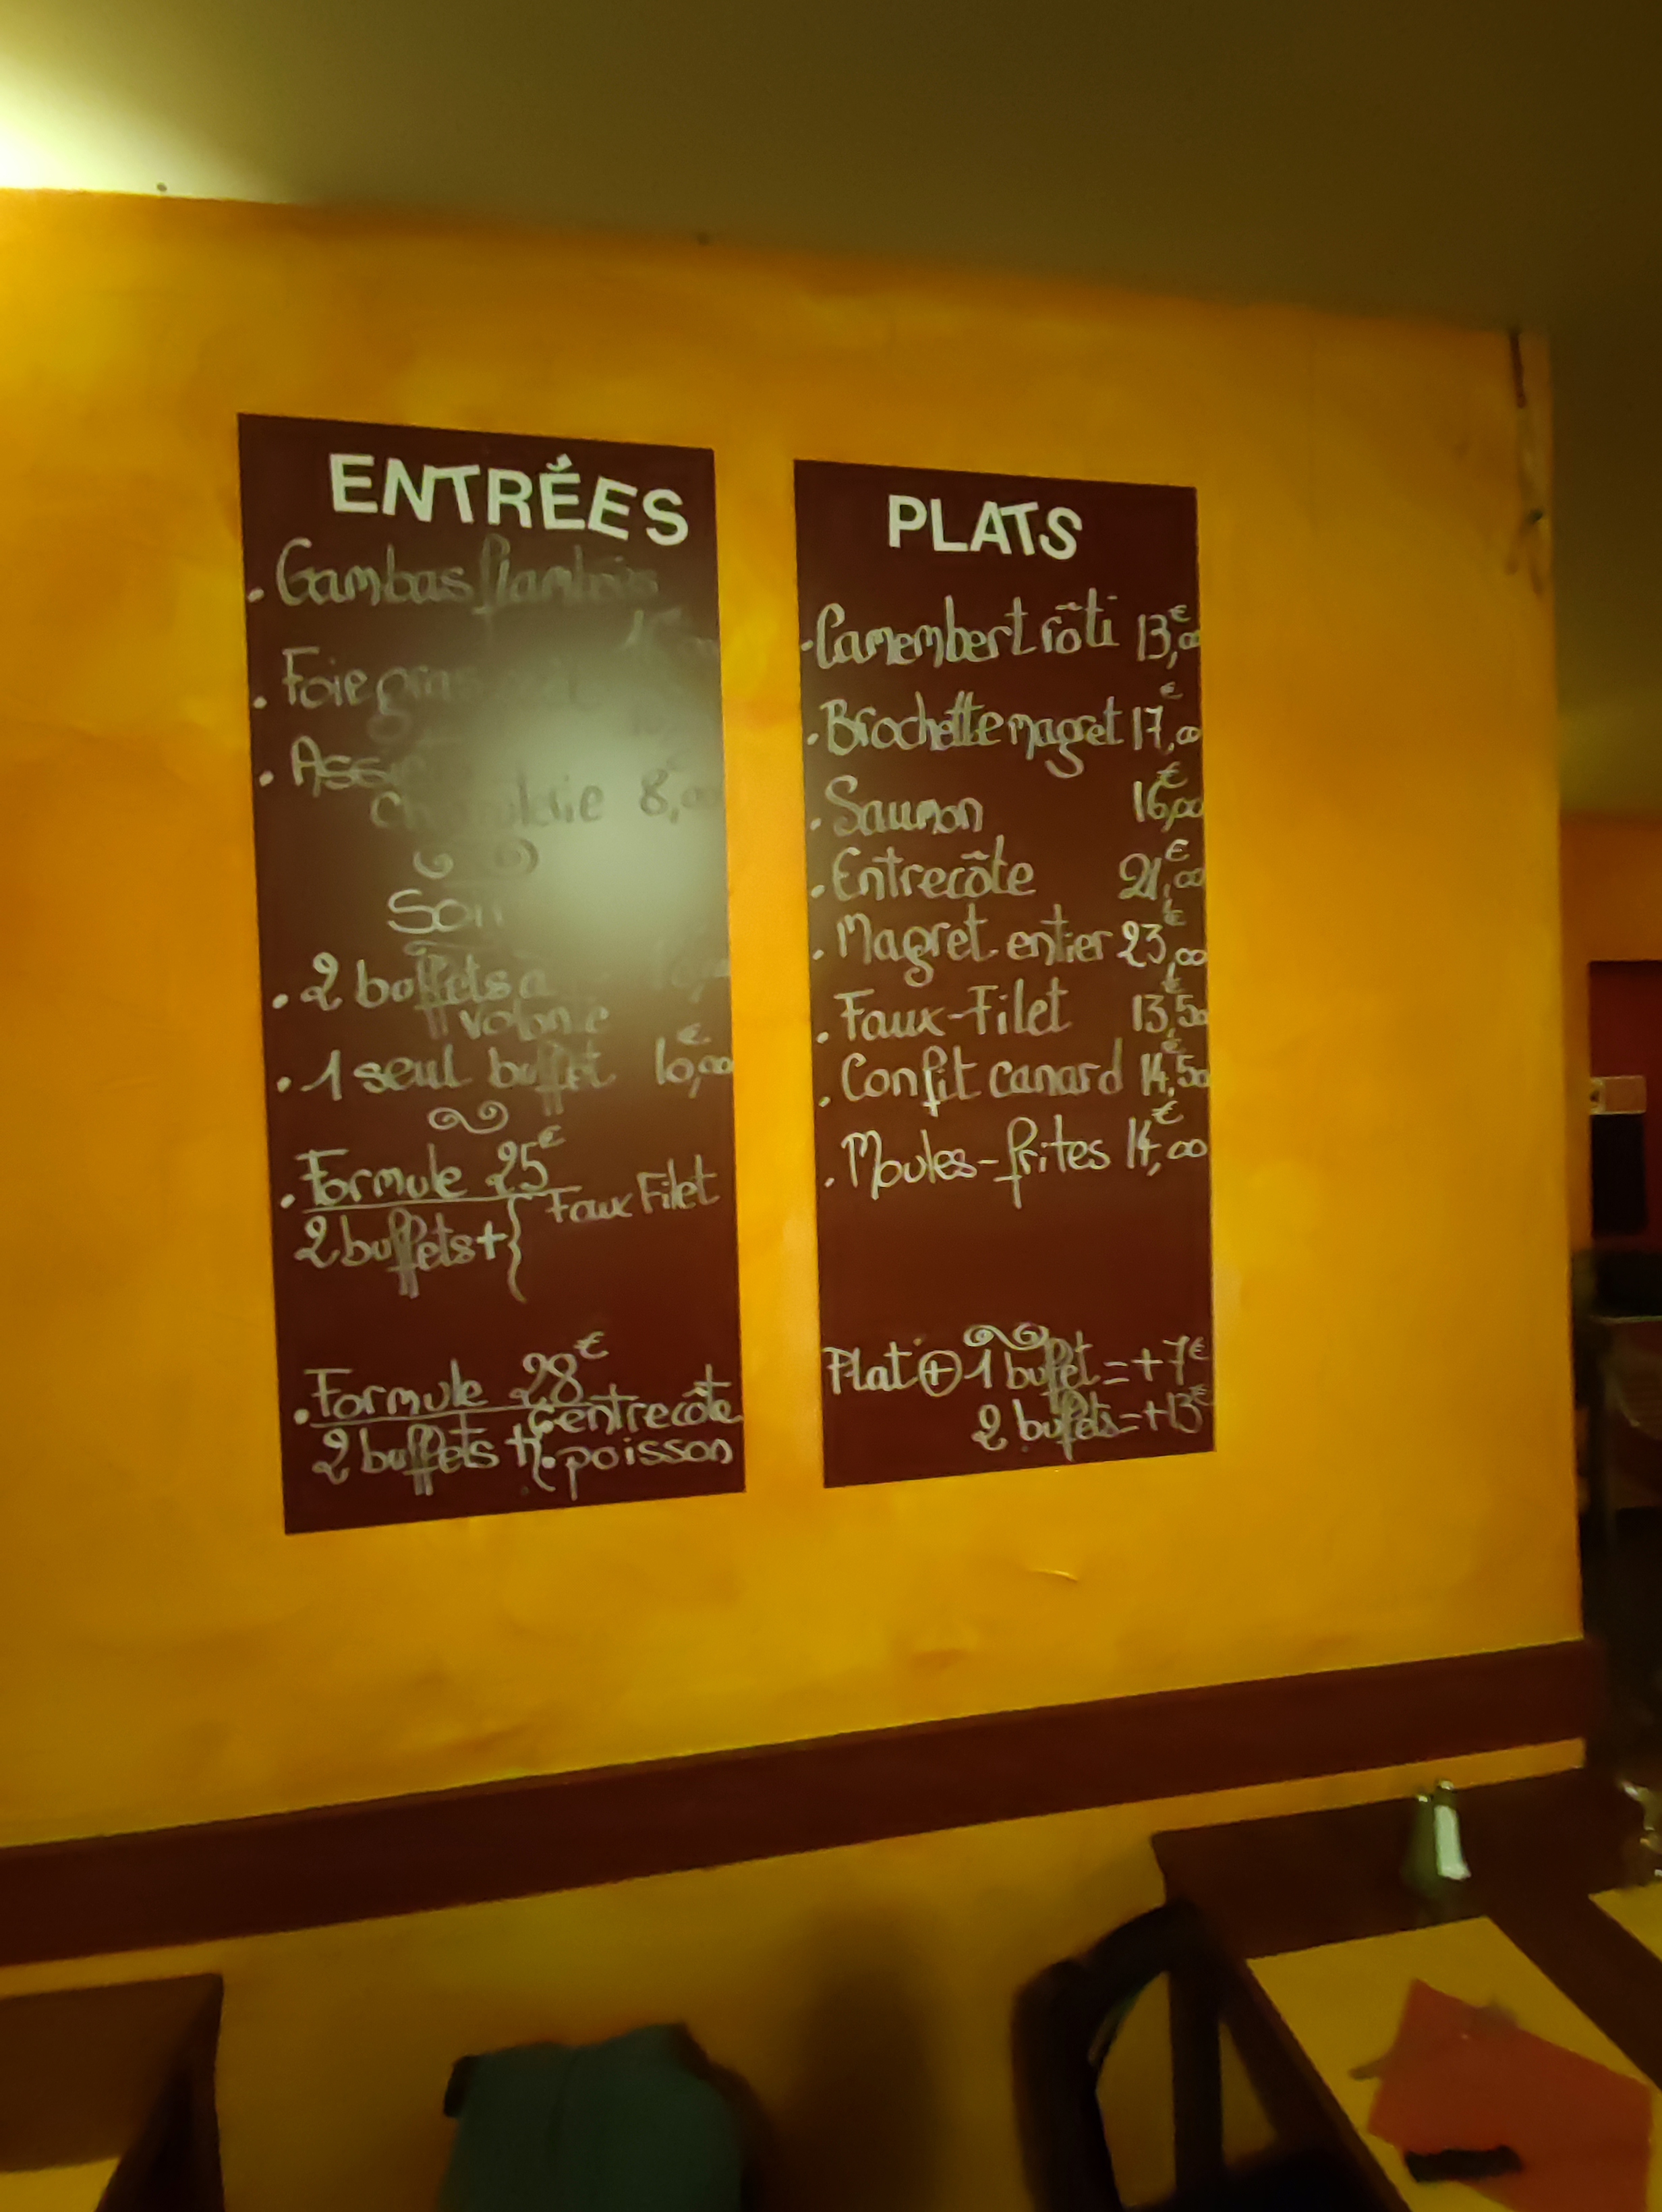 ENTRÉES
. Gambas flambées
. Foie gras
. Ass
8,00
Soir
. 2 buffets à
volonté
. 1 seul buffet 10,€00
. Formule 25€
2 buffets + { Faux Filet
. Formule 28€
2 buffets + { entrecôte
. poisson
PLATS
. Camembert rôti 13,€00
. Brochette magret 17,€00
. Saumon 16,€00
. Entrecôte 21,€00
. Magret entier 23,€00
. Faux-Filet 13,€50
. Confit canard 14,€50
. Moules-frites 14,€00
Plat ⊕ 1 buffet = +7€
2 buffets = +13€